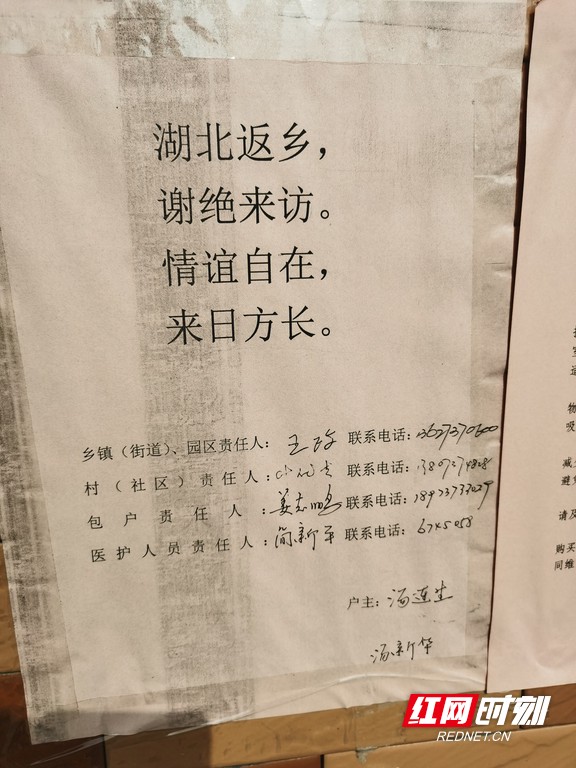 湖北返乡，
谢绝来访。
情谊自在，
来日方长。
乡镇（街道）、园区责任人：王政 联系电话：13627370600
村（社区）责任人： 联系电话：
包户责任人：姜志鹏 联系电话：18973733029
医护人员责任人：简新平 联系电话：6745058
户主：汤连生
汤新华
物
吸
减
避免
请及
购买
同维
红网时刻
REDNET.CN